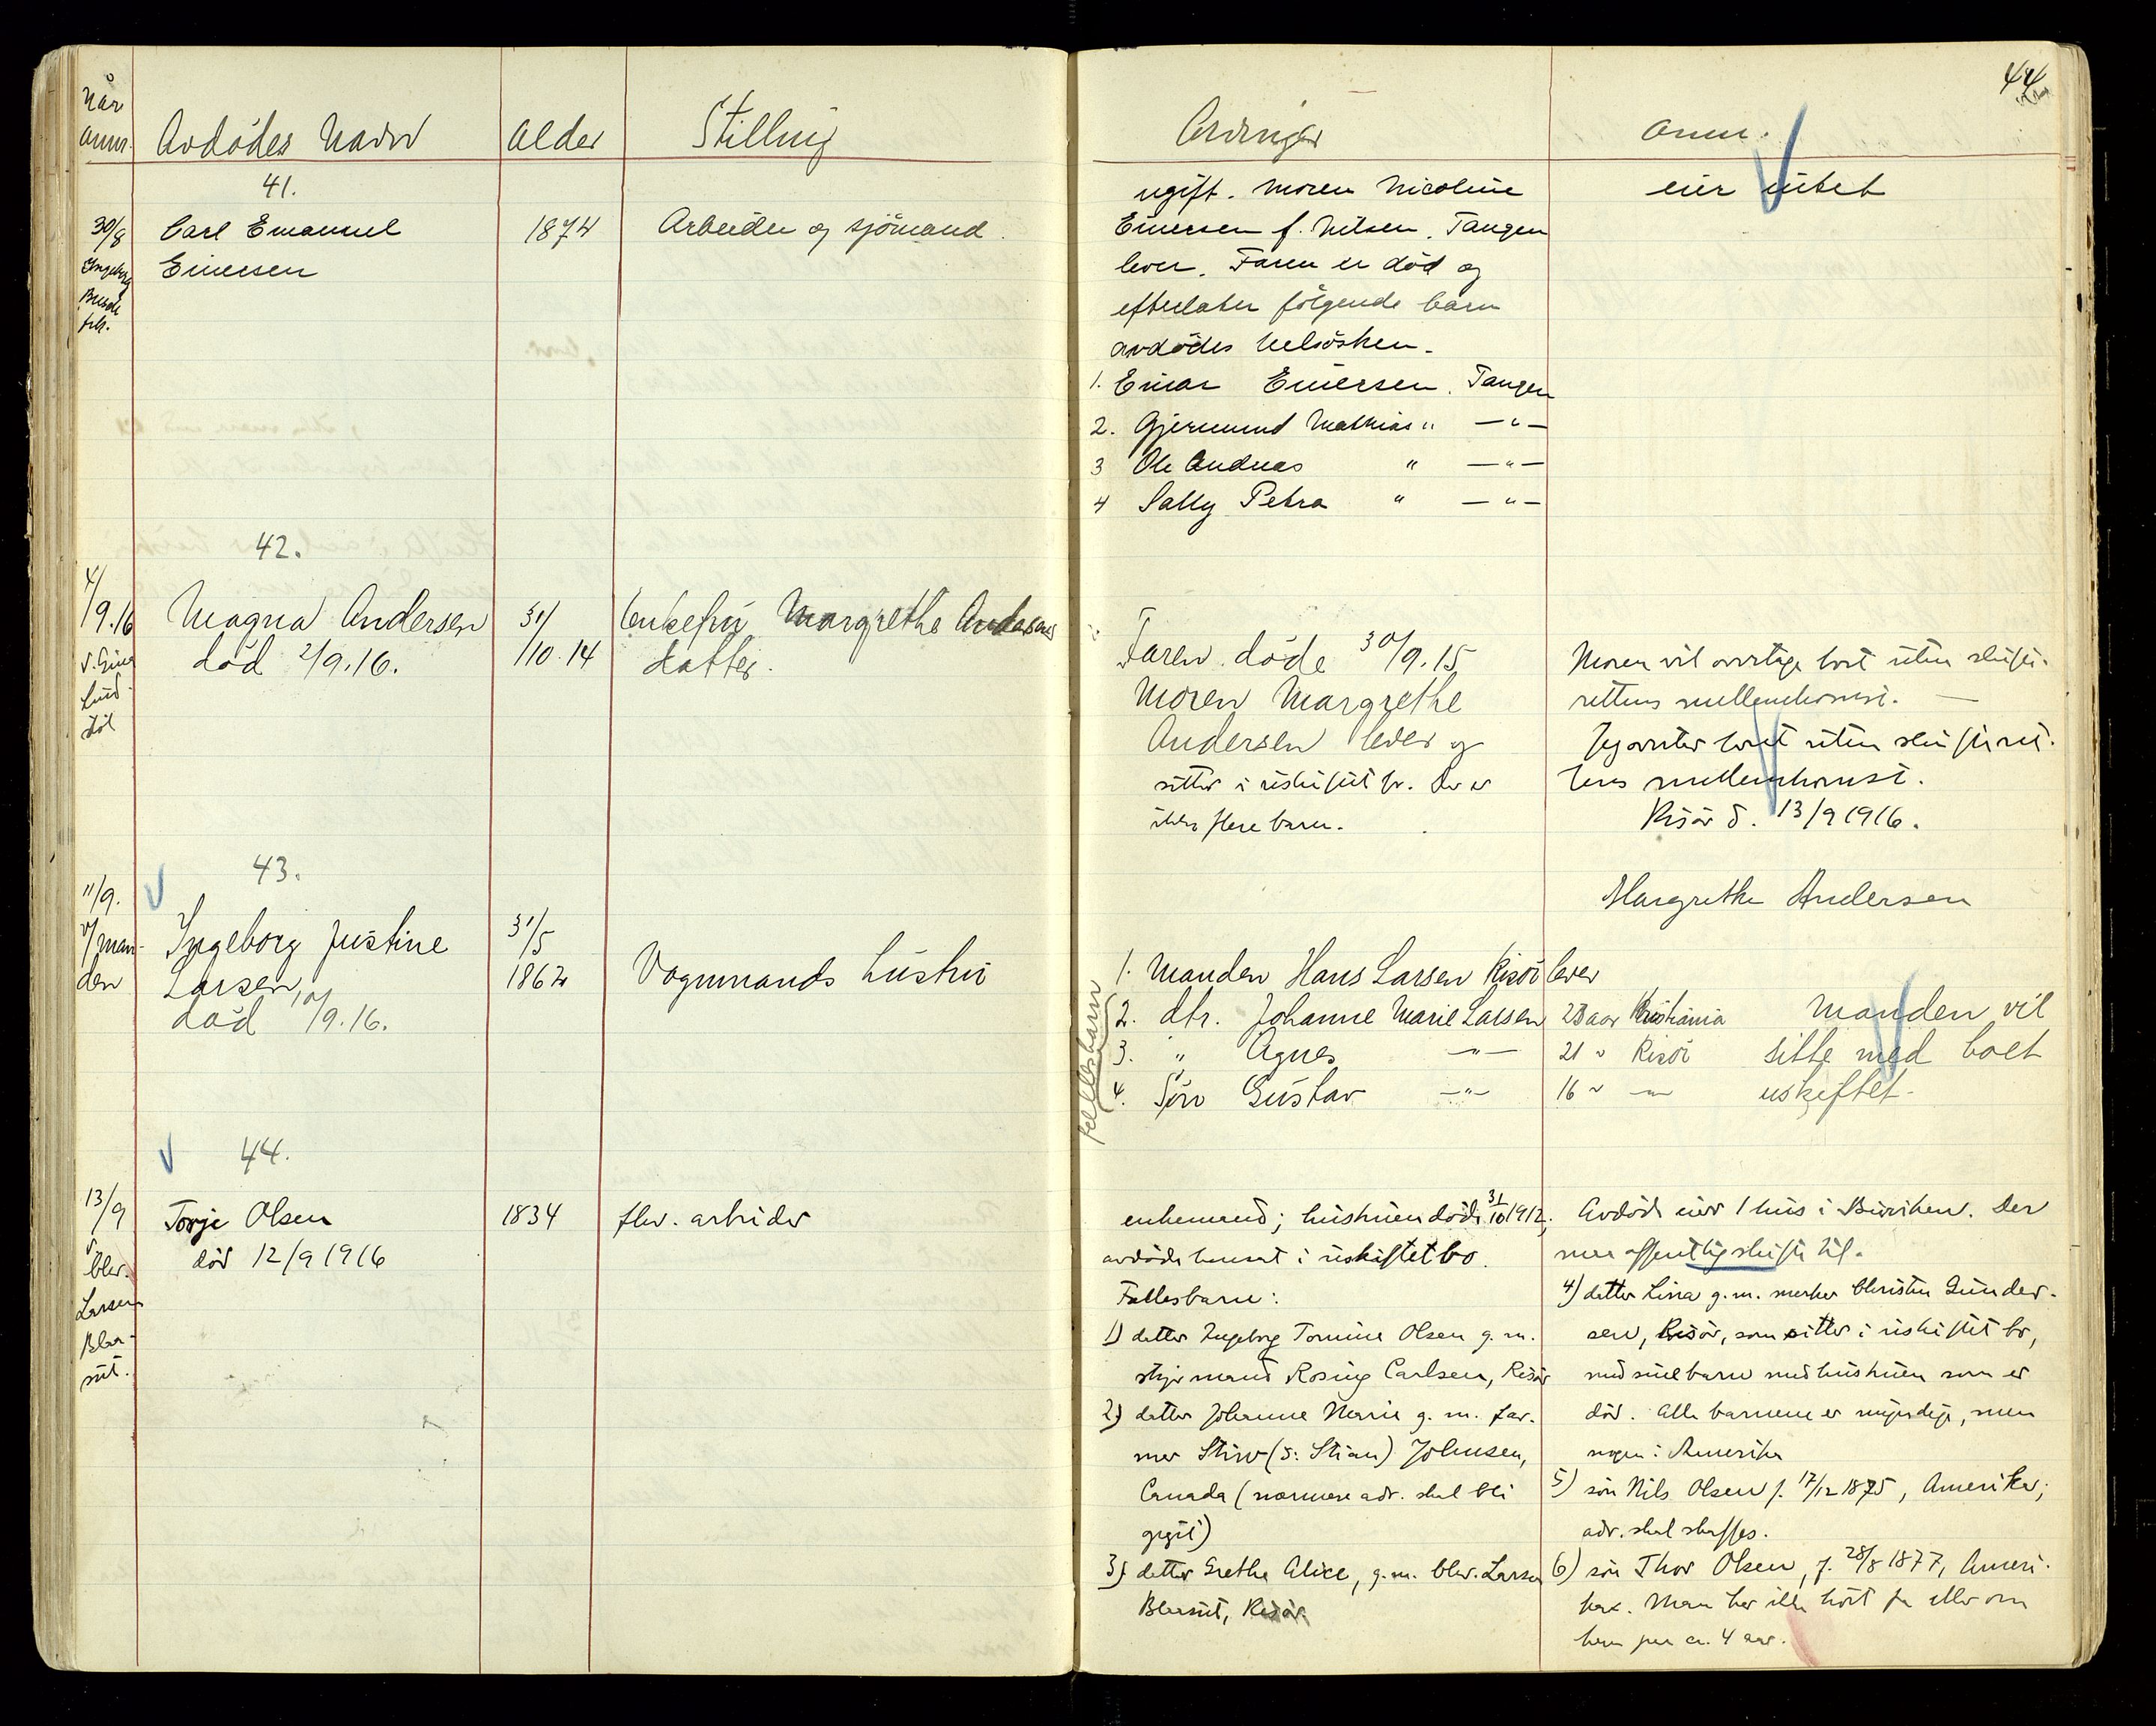 44
Når anm.
Avdödes Navn
Alder
Stilling
Arvinger
Anm.
41.
30/8
Ingeborg
Carl Emanuel
Einersen
1874
Arbeider og sjömand.
ugift. Moren Nicoline
Einersen f. Nilsen. Tangen
lever. Faren er död og
efterlater fölgende barn
avdödes helsösken.
1. Einar Einersen. Tangen
2. Gjermund Mathias " — " —
3 Ole Andreas " — " —
4 Sally Petra " — " —
eier intet
42.
4/9.16
Magna Andersen
död 2/9.16.
31/10.14
Enkefru Margrethe Andersens
datter.
Faren döde 30/9.15
Moren Margrethe
Andersen lever og
sitter i uskiftet bo. Der er
ikke flere barn.
Moren vil overtage boet uten skifte-
rettens mellemkomst. —
Jeg overtar boet uten skifteret-
tens mellemkomst.
Risör d. 13/9 1916.
Margrethe Andersen
43.
11/9.
v/ man-
den
Ingeborg Justine
Larsen,
död 10/9.16.
31/5
1862
Vognmands hustru
fellesbarn
1. Manden Hans Larsen Risör lever
2. dtr. Johanne Marie Larsen 23 aar Kristiania
3. " Agnes — " — 21 " Risör
4. Sön Gustav — " — 16 " — " —
Manden vil
sitte med boet
uskiftet.
44.
13/9
v.
Chr.
Larsen
Torje Olsen
död 12/9 1916
1834
fhv. arbeider
enkemand; hustruen döde 31/10 1912;
avdöde hensat i uskiftet bo.
Fællesbarn:
1) datter Ingeborg Tomine Olsen g. m.
styrmand Rosing Carlsen, Risör
2) datter Johanne Marie g. m. far-
mer Stiw (ɔ: Stian) Johnsen,
Canada (nærmere adr. skal bli
git)
3) datter Grethe Alice, g. m. Chr. Larsen
Risör
Avdöde eier 1 hus i Buviken. Der
maa offentlig skifte til.
4) datter Lina g. m. murker Christen Gunder-
sen, Risör, som sitter i uskiftet bo,
med sine barn med hustruen som er
död. Alle barnene er myndige, men
nogen i Amerika
5) sön Nils Olsen f. 17/12 1875, Amerika;
adr. skal skaffes.
6) sön Thor Olsen, f. 28/8 1877, Ameri-
ka. Man har ikke hört fra eller om
ham paa ca. 4 aar.